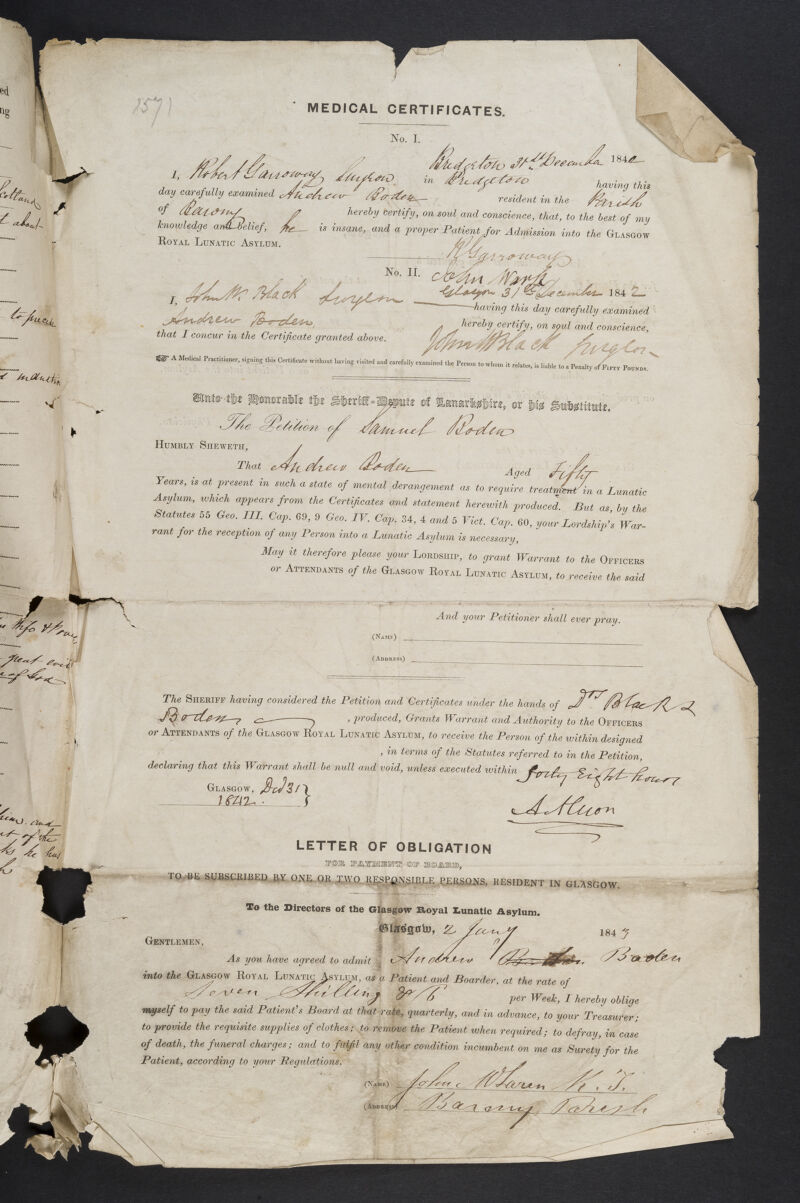 2571
MEDICAL CERTIFICATES.
No. I.
Bridgeton 31st December 1842
I, Robert Garroway Surgeon in Bridgeton having this
day carefully examined Andrew Boden resident in the Parish
of Barony hereby certify, on soul and conscience, that, to the best of my
knowledge and belief, he is insane, and a proper Patient for Admission into the GLASGOW
ROYAL LUNATIC ASYLUM.
R Garroway
No. II. John Wark
Glasgow 31st December 1842
I, John W. Black Surgeon having this day carefully examined
Andrew Boden hereby certify, on soul and conscience,
that I concur in the Certificate granted above. John W Black Surgeon
☞ A Medical Practitioner, signing this Certificate without having visited and carefully examined the Person to whom it relates, is liable to a Penalty of FIFTY POUNDS.
Unto the Honorable the Sheriff-Depute of Lanarkshire, or his Substitute.
The Petition of Samuel Boden
HUMBLY SHEWETH,
That Andrew Boden Aged Fifty
Years, is at present in such a state of mental derangement as to require treatment in a Lunatic
Asylum, which appears from the Certificates and statement herewith produced. But as, by the
Statutes 55 Geo. III. Cap. 69, 9 Geo. IV. Cap. 34, 4 and 5 Vict. Cap. 60, your Lordship's War-
rant for the reception of any Person into a Lunatic Asylum is necessary,
May it therefore please your LORDSHIP, to grant Warrant to the OFFICERS
or ATTENDANTS of the GLASGOW ROYAL LUNATIC ASYLUM, to receive the said
And your Petitioner shall ever pray.
(NAME)
(ADDRESS)
The SHERIFF having considered the Petition and Certificates under the hands of Drs Black &
Boden , produced, Grants Warrant and Authority to the OFFICERS
or ATTENDANTS of the GLASGOW ROYAL LUNATIC ASYLUM, to receive the Person of the within designed
, in terms of the Statutes referred to in the Petition,
declaring that this Warrant shall be null and void, unless executed within forty Eight hours
GLASGOW, Decr 31
1842.
LETTER OF OBLIGATION
FOR PAYMENT OF BOARD,
TO BE SUBSCRIBED BY ONE OR TWO RESPONSIBLE PERSONS, RESIDENT IN GLASGOW.
To the Directors of the Glasgow Royal Lunatic Asylum.
Glasgow, 2 Jany 1843
GENTLEMEN,
As you have agreed to admit Andrew Boden
into the GLASGOW ROYAL LUNATIC ASYLUM, as a Patient and Boarder, at the rate of
Seven Shilling & 6 per Week, I hereby oblige
myself to pay the said Patient's Board at that rate, quarterly, and in advance, to your Treasurer;
to provide the requisite supplies of clothes; to remove the Patient when required; to defray, in case
of death, the funeral charges; and to fulfil any other condition incumbent on me as Surety for the
Patient, according to your Regulations.
(NAME) John McLaren K. T.
(ADDRESS) Barony Parish